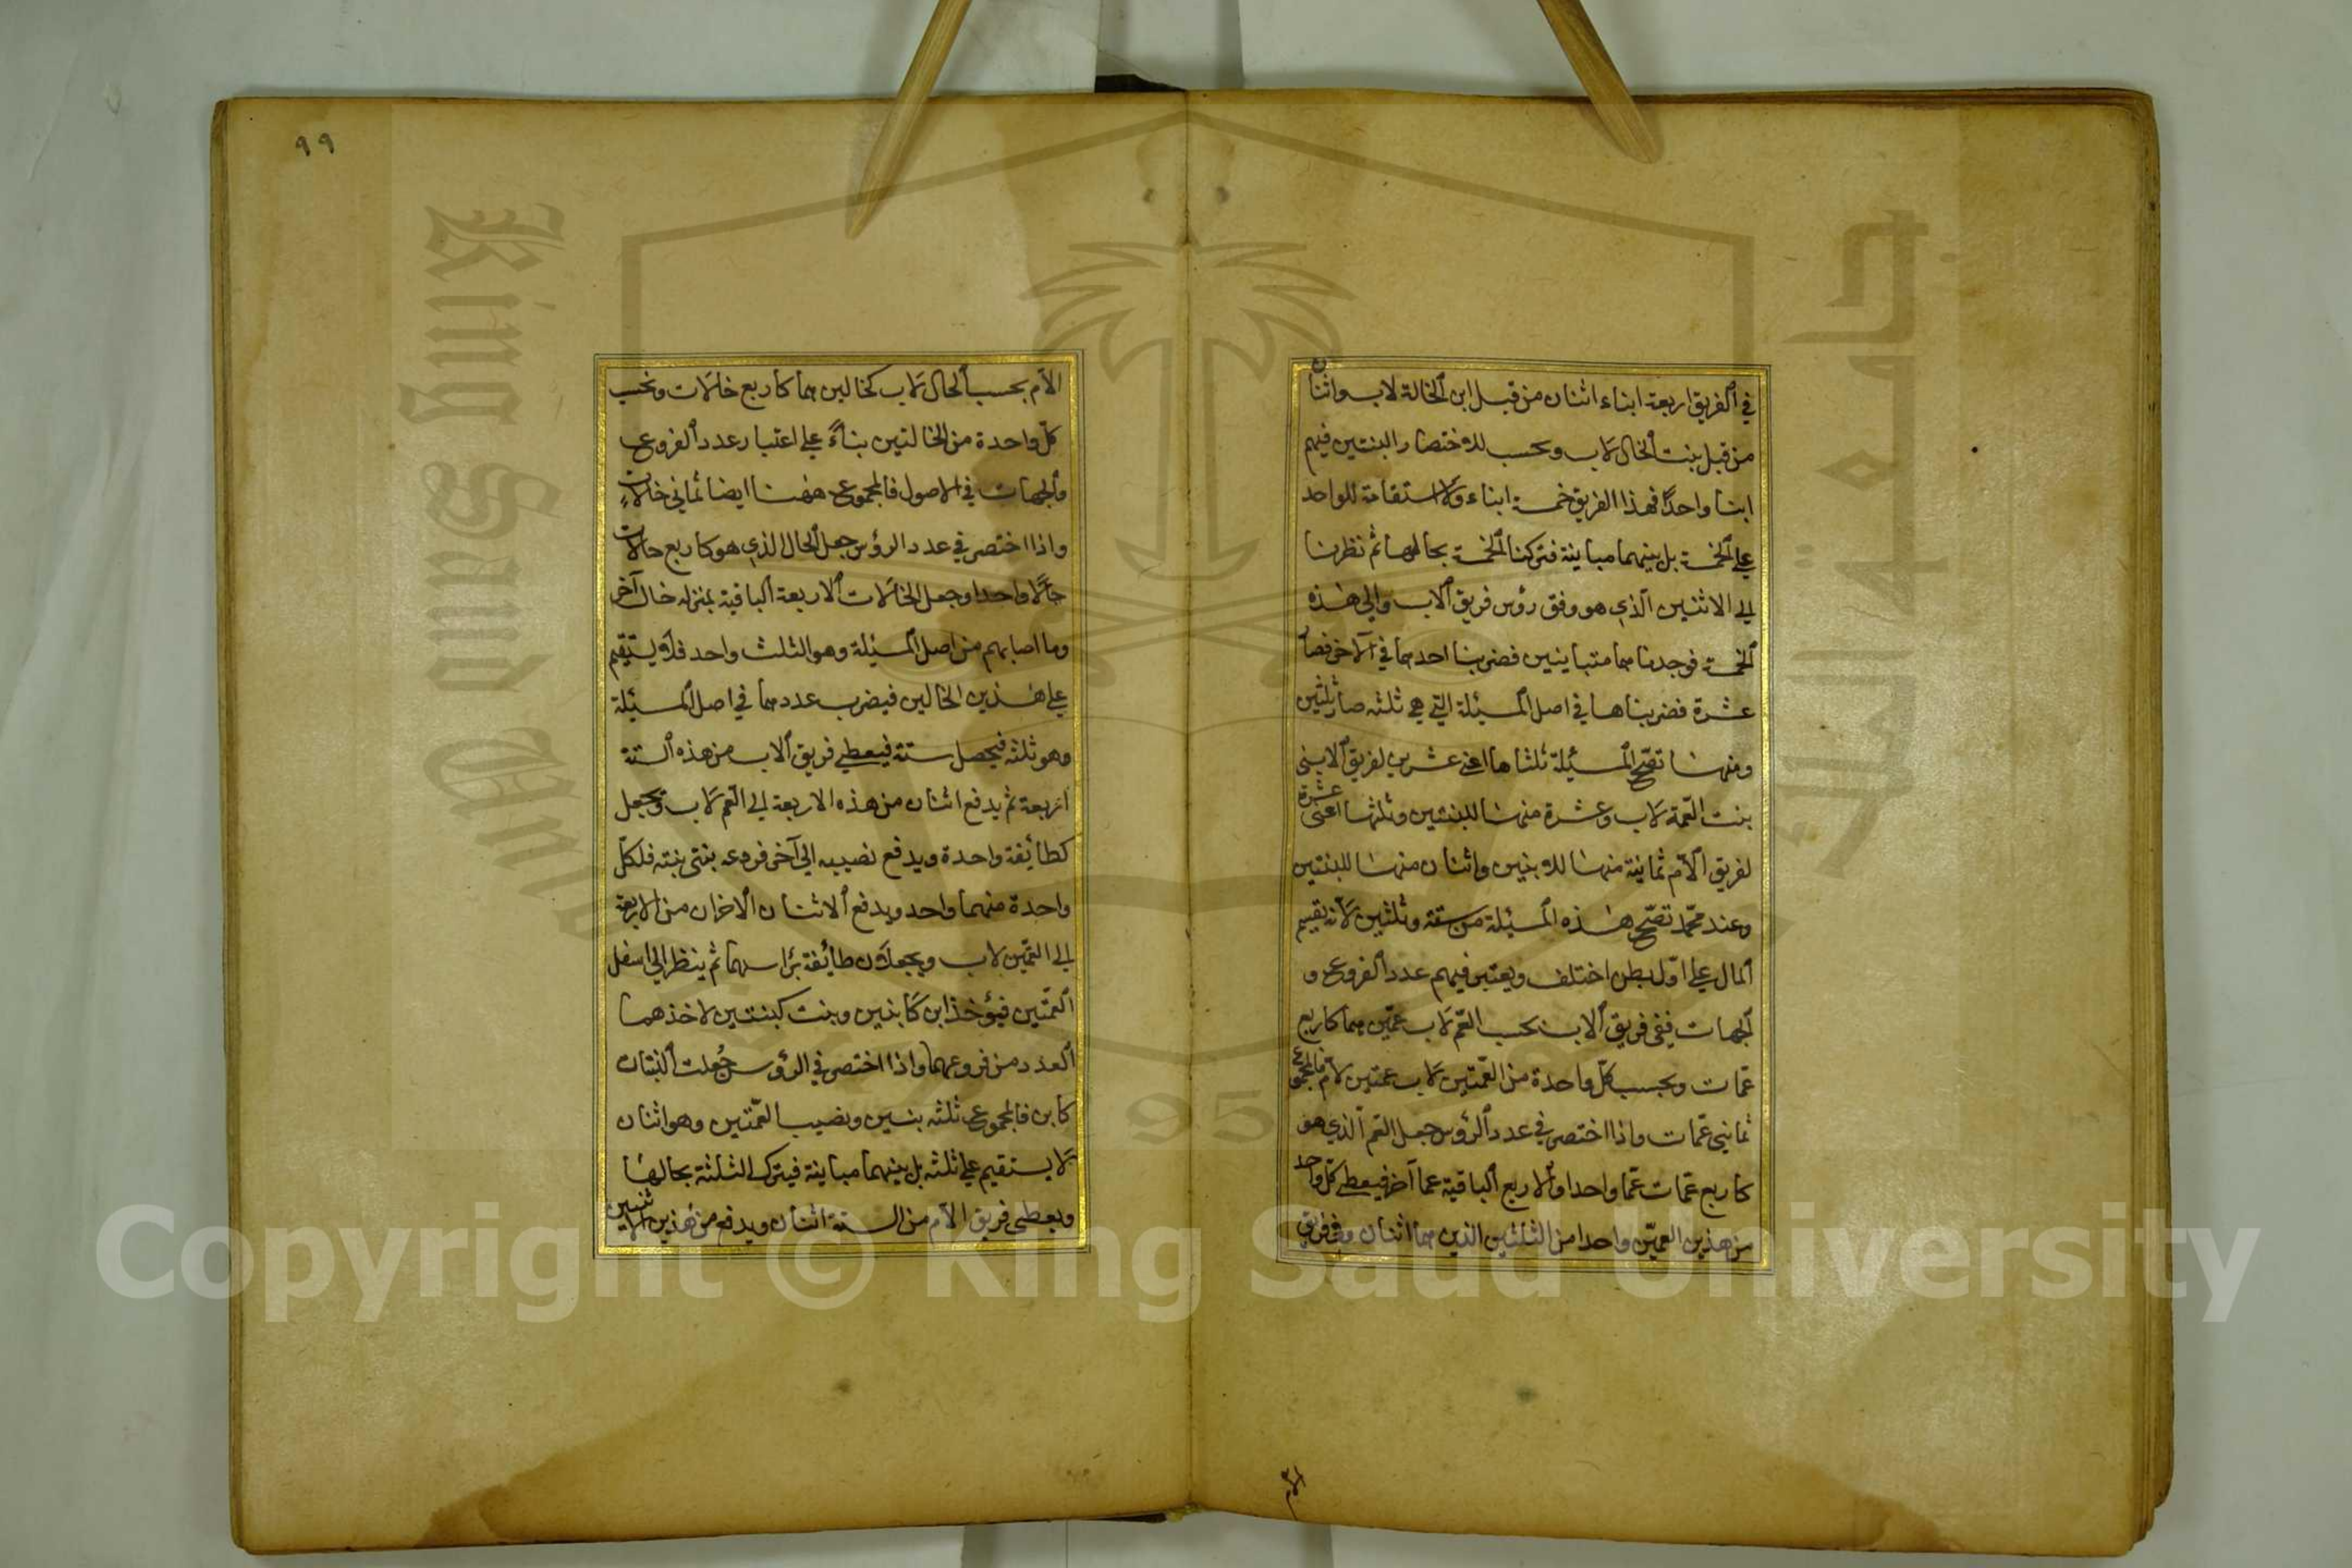 في الفريق اربعة ابناء اثنان من قبل ابن الخالة لاب واثنان
من قبل بنت الخال لاب ويحسب للاختصار البنتين فيهم
ابنا واحدا فهذا الفريق خمسة ابناء ولا استقامة للواحد
على الخمسة بل بينهما مباينة فتركنا الخمسة بحالها ثم نظرنا
الى الاثنين الذي هو وفق رؤس فريق الاب والى هذه
الخمسة فوجدناهما متباينين فضربنا احدهما في الآخر فصار
عشرة فضربناها في اصل المسئلة التي هي ثلثة صار ثلثين
ومنها تصح المسئلة ثلثاها اعني عشرين لفريق الاب
بنت العمة لاب وعشرة منها للبنتين وثلثها اعنى عشرة
لفريق الام ثمانية منها للابنين واثنان منها للبنتين
وعند محمّد تصحّ هذه المسئلة من ستة وثلثين لانه يقسم
المال على اوّل بطن اختلف ويعتبر فيهم عدد الفروع و
الجهات ففي فريق الاب يحسب العمّ لاب عمّين هما كاربع
عمّات ويحسب كلّ واحدة من العمّتين لاب عمتين لامّ فالمجموع
ثماني عمّات واذا اختصر في عدد الرؤس جعل العم الذي هو
كاربع عمّات عمّا واحدا والاربع الباقية عما آخر فيعطى كلّ واحد
من هذين العميّن واحدا من الثلثين الذين هما اثنان وفي فريق
الام
٩٩
الام يحسب الخال لاب كخالين هما كاربع خالات ويحسب
كلّ واحدة من الخالتين بناءً على اعتبار عدد الفروع
والجهات في الاصول فالمجموع ههنا ايضا ثماني خالات
واذا اختصر في عدد الرؤس جعل الخال الذي هو كاربع خالات
خالا واحدا وجعل الخالات الاربعة الباقية بمنزلة خال آخر
وما اصابهم من اصل المسئلة وهو الثلث واحد فلا يستقيم
على هذين الخالين فيضرب عددهما في اصل المسئلة
وهو ثلثة فيحصل ستة فيعطى فريق الاب من هذه الستة
اربعة ثم يدفع اثنان من هذه الاربعة الى العم لاب ويجعل
كطائفة واحدة ويدفع نصيبه الى آخر فروعه بنتى بنته فلكلّ
واحدة منهما واحد ويدفع الاثنان الاخران من الاربعة
الى العمّتين لاب ويجعلان طائفة برأسهما ثم ينظر الى اسفل
العمّتين فيؤخذ ابن كابنين وبنت كبنتين لاخذهما
العدد من فروعهما واذا اختصر في الرؤس جُعلت البنتان
كابن فالمجموع ثلثة بنين ونصيب العمّتين وهو اثنان
لا يستقيم على ثلثة بل بينهما مباينة فيترك الثلثة بحالها
ويعطى فريق الام من الستة اثنان ويدفع من هذين الاثنين
King Saud University
95
Copyright © King Saud University